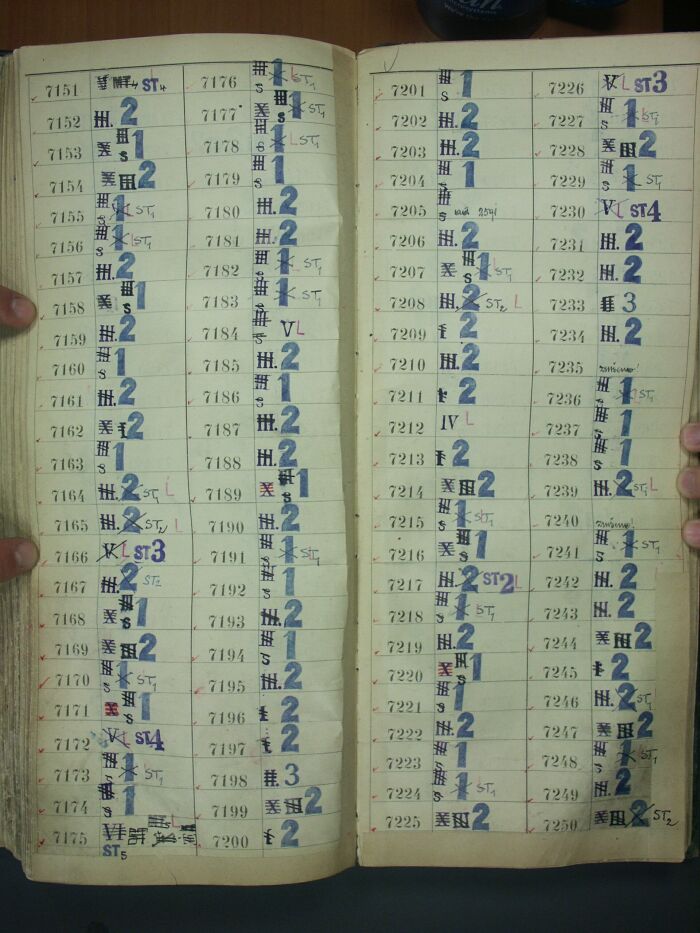 7151 ST4
7152 III. 2
7153 X III S 1
7154 X III 2
7155 III S 1 ST1
7156 III S 1 L ST1
7157 III. 2
7158 X III S 1
7159 III. 2
7160 III S 1
7161 III. 2
7162 X I 2
7163 III S 1
7164 III. 2 ST1 L
7165 III. 2 ST2 L
7166 V L ST3
7167 III. 2 ST2
7168 X III S 1
7169 X III 2
7170 III S 1 ST1
7171 X III S 1
7172 V L ST4
7173 III S 1 ST1
7174 III S 1
7175 VI L ST5
7176 III S 1 L ST1
7177 X III S 1 ST1
7178 III S 1 L ST1
7179 III S 1
7180 III. 2
7181 III. 2
7182 III S 1 ST1
7183 III S 1 ST1
7184 III S V L
7185 III. 2
7186 III S 1
7187 III. 2
7188 III. 2
7189 X III S 1
7190 III. 2
7191 III S 1 ST1
7192 III S 1
7193 III. 2
7194 III S 1
7195 III. 2
7196 I 2
7197 I 2
7198 II. 3
7199 X III 2
7200 I 2
7201 III S 1
7202 III. 2
7203 III. 2
7204 III S 1
7205 III S
7206 III. 2
7207 X III S 1 ST1
7208 III. 2 ST2 L
7209 I 2
7210 III. 2
7211 I 2
7212 IV L
7213 I 2
7214 X III 2
7215 III S 1 ST1
7216 X III S 1
7217 III. 2 ST2 L
7218 III S 1 ST1
7219 III. 2
7220 X III S 1
7221 III S 1
7222 III. 2
7223 III S 1
7224 III S 1 ST1
7225 X III 2
7226 V L ST3
7227 III S 1 ST1
7228 X III 2
7229 III S 1 ST1
7230 V L ST4
7231 III. 2
7232 III. 2
7233 II 3
7234 III. 2
7235
7236 III S 1 ST1
7237 III S 1
7238 III S 1
7239 III. 2 ST1 L
7240
7241 III S 1 ST1
7242 III. 2
7243 III. 2
7244 X III 2
7245 I 2
7246 III. 2 ST1
7247 X III 2
7248 III S 1 ST1
7249 III. 2
7250 X III 2 ST2